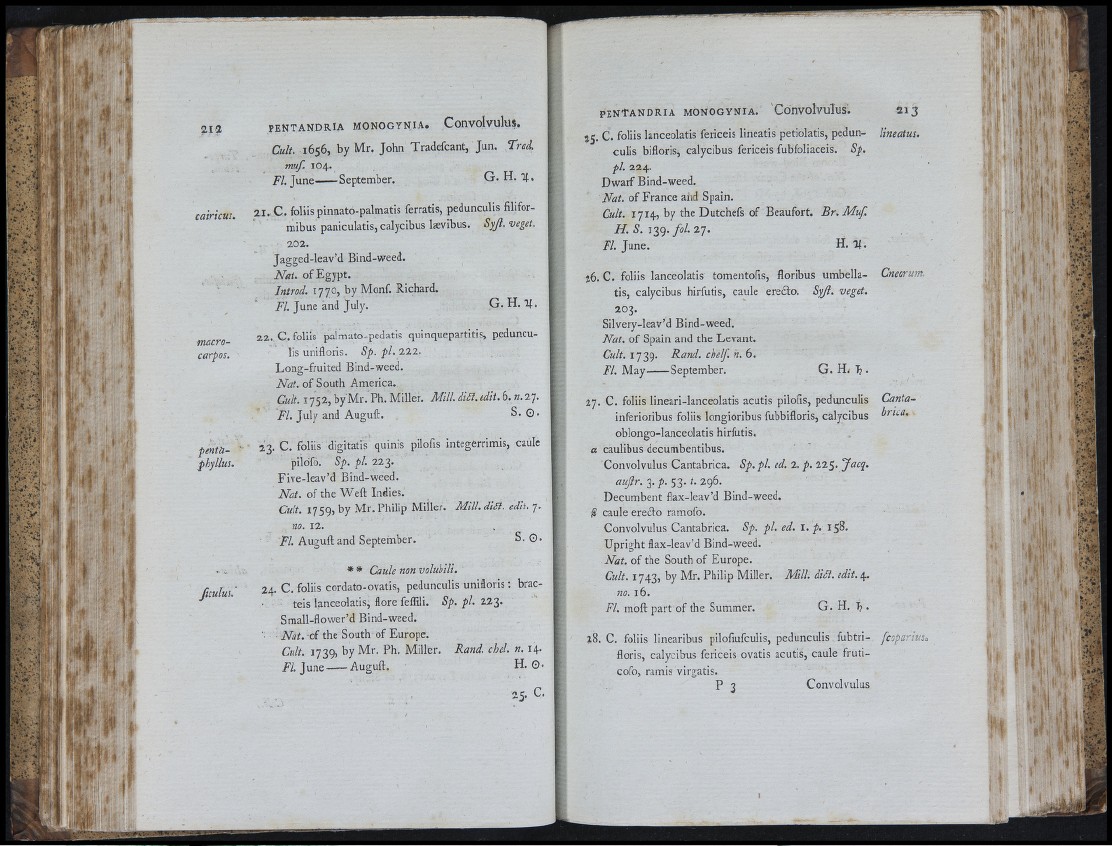 212 PENTANDRIA MONOGYNIA. Convolvulus.
Cult. 1656, by Mr. John Tradeſcant, Jun. Tred.
muſ. 104.
Fl. June——September. G. H. ♃.
cairicus. 21. C. foliis pinnato-palmatis ſerratis, pedunculis filifor-
mibus paniculatis, calycibus lævibus. Syſt. veget.
202.
Jagged-leav'd Bind-weed.
Nat. of Egypt.
Introd. 1770, by Monſ. Richard.
Fl. June and July. G. H. ♃.
macro-
carpos.
22. C. foliis palmato-pedatis quinquepartitis, peduncu-
lis unifloris. Sp. pl. 222.
Long-fruited Bind-weed.
Nat. of South America.
Cult. 1752, by Mr. Ph. Miller. Mill. dict. edit. 6. n. 27.
Fl. July and Auguſt. S. ☉.
penta-
phyllus.
23. C. foliis digitatis quinis piloſis integerrimis, caule
piloſo. Sp. pl. 223.
Five-leav'd Bind-weed.
Nat. of the Weſt Indies.
Cult. 1759, by Mr. Philip Miller. Mill. dict. edit. 7.
no. 12.
Fl. Auguſt and September. S. ☉.
** Caule non volubili.
ſiculus. 24. C. foliis cordato-ovatis, pedunculis unifloris: brac-
teis lanceolatis, flore ſeſſili. Sp. pl. 223.
Small-flower'd Bind-weed.
Nat. of the South of Europe.
Cult. 1739, by Mr. Ph. Miller. Rand. chel. n. 14.
Fl. June—— Auguſt. H. ☉.
25. C.
PENTANDRIA MONOGYNIA. Convolvulus. 213
25. C. foliis lanceolatis ſericeis lineatis petiolatis, pedun- lineatus.
culis bifloris, calycibus ſericeis ſubfoliaceis. Sp.
pl. 224.
Dwarf Bind-weed.
Nat. of France and Spain.
Cult. 1714, by the Dutcheſs of Beaufort. Br. Muſ.
H. S. 139. fol. 27.
Fl. June. H. ♃.
26. C. foliis lanceolatis tomentoſis, floribus umbella- Cneorum.
tis, calycibus hirſutis, caule erecto. Syſt. veget.
203.
Silvery-leav'd Bind-weed.
Nat. of Spain and the Levant.
Cult. 1739. Rand. chelſ. n. 6.
Fl. May——September. G. H. ♄.
27. C. foliis lineari-lanceolatis acutis piloſis, pedunculis Canta-
inferioribus foliis longioribus ſubbifloris, calycibus brica.
oblongo-lanceolatis hirſutis.
α caulibus decumbentibus.
Convolvulus Cantabrica. Sp. pl. ed. 2. p. 225. Jacq.
auſtr. 3. p. 53. t. 296.
Decumbent flax-leav'd Bind-weed.
β caule erecto ramoſo.
Convolvulus Cantabrica. Sp. pl. ed. 1. p. 158.
Upright flax-leav'd Bind-weed.
Nat. of the South of Europe.
Cult. 1743, by Mr. Philip Miller. Mill. dict. edit. 4.
no. 16.
Fl. moſt part of the Summer. G. H. ♄.
28. C. foliis linearibus piloſiuſculis, pedunculis ſubtri- ſcoparius.
floris, calycibus ſericeis ovatis acutis, caule fruti-
coſo, ramis virgatis.
P 3 Convolvulus